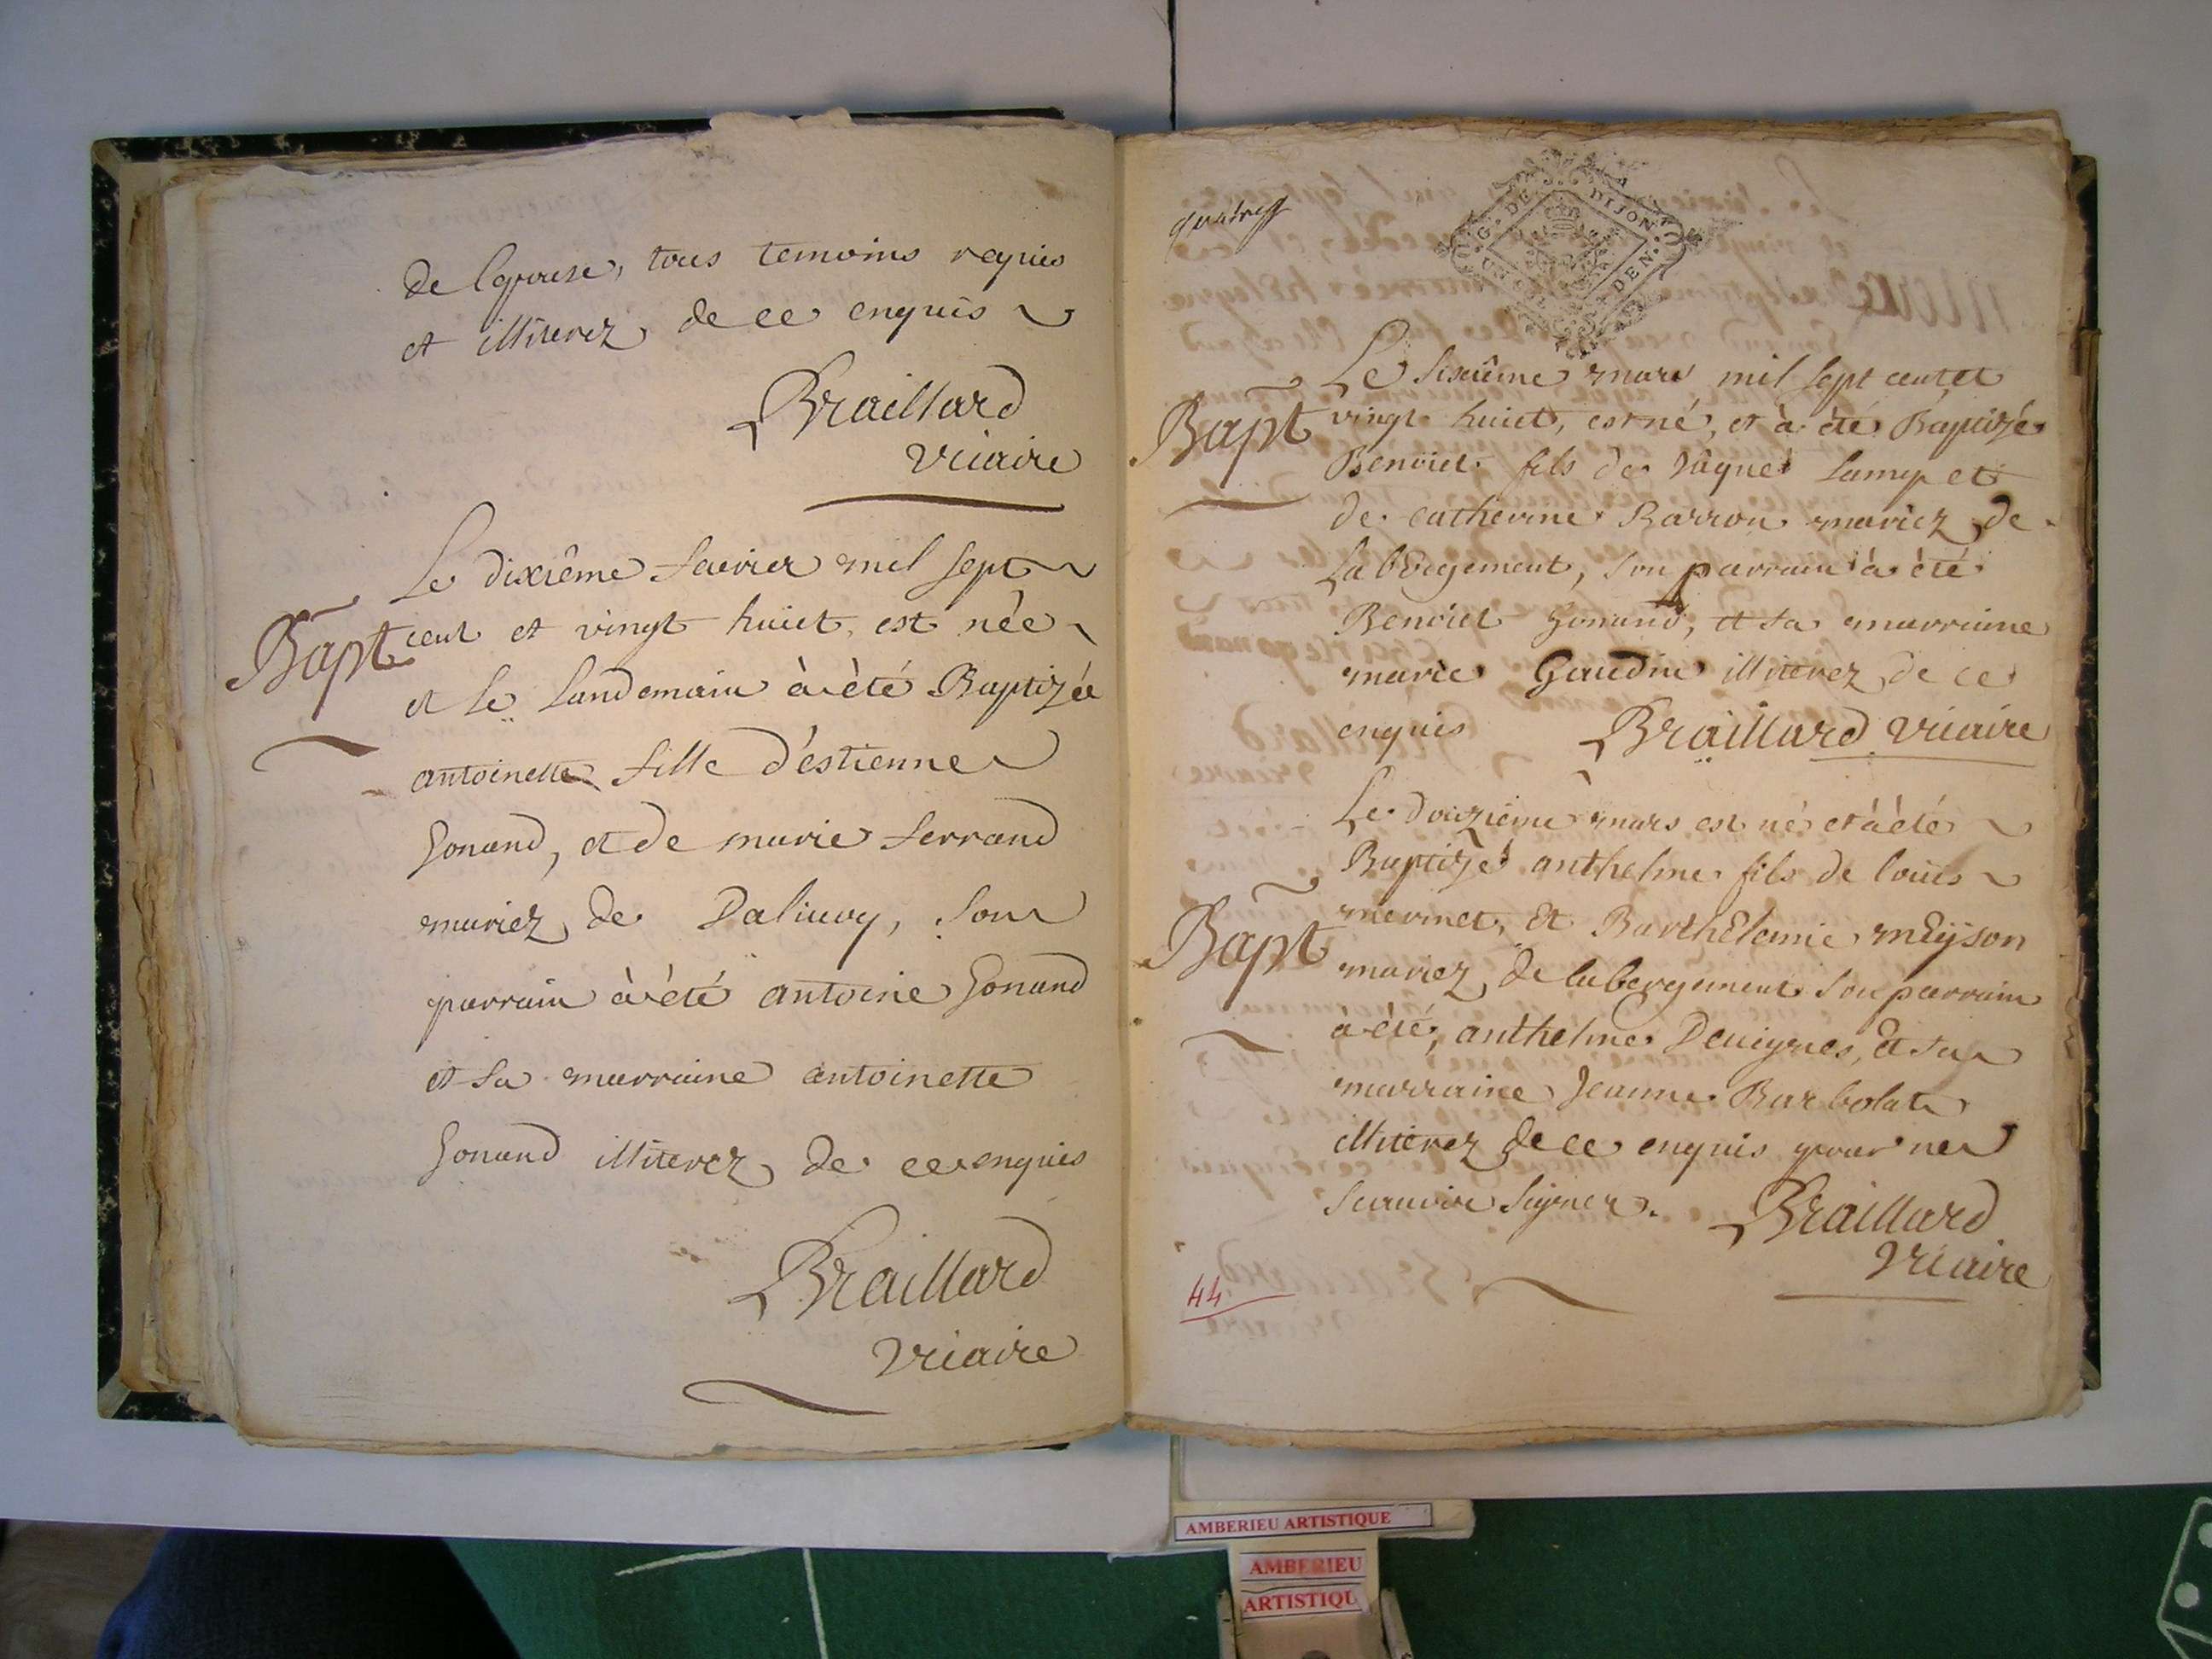 de lepouse, tous temoins requis
et illiterez de ce enquis
Braillard
Vicaire
Le dixiême fevrier mil sept
Bapt
cent et vingt huict, est née
et le landemain à été Baptizée
antoinette fille d'éstienne
Gonand, et de marie ferrand
mariez de Dalivoy, son
parrain à été antoine Gonand
et sa marraine antoinette
Gonand illiterez de ce enquis
Braillard
Vicaire
G. DE DIJON
Le sixiême mars mil sept cent et
Bapt
vingt huict, est né, et à été Baptizé
Benoict fils de Lamy et
de catherine Barron mariez de
Labbergement, son parrain à été
Benoict Gonand, et sa marraine
marie Gaudin illiterez de ce
enquis Braillard Vicaire
Le douzieme mars est né et à été
Baptizé anthelme fils de loüis
Bapt
mermet, Et BarthElemie mEÿson
mariez de labergement son parrain
à été, anthelme Deuignes, Et sa
marraine Jeanne Barbolat
illiterez de ce enquis pour ne
scauoir signer. Braillard
Vicaire
44
AMBERIEU ARTISTIQUE
AMBERIEU
ARTISTIQU